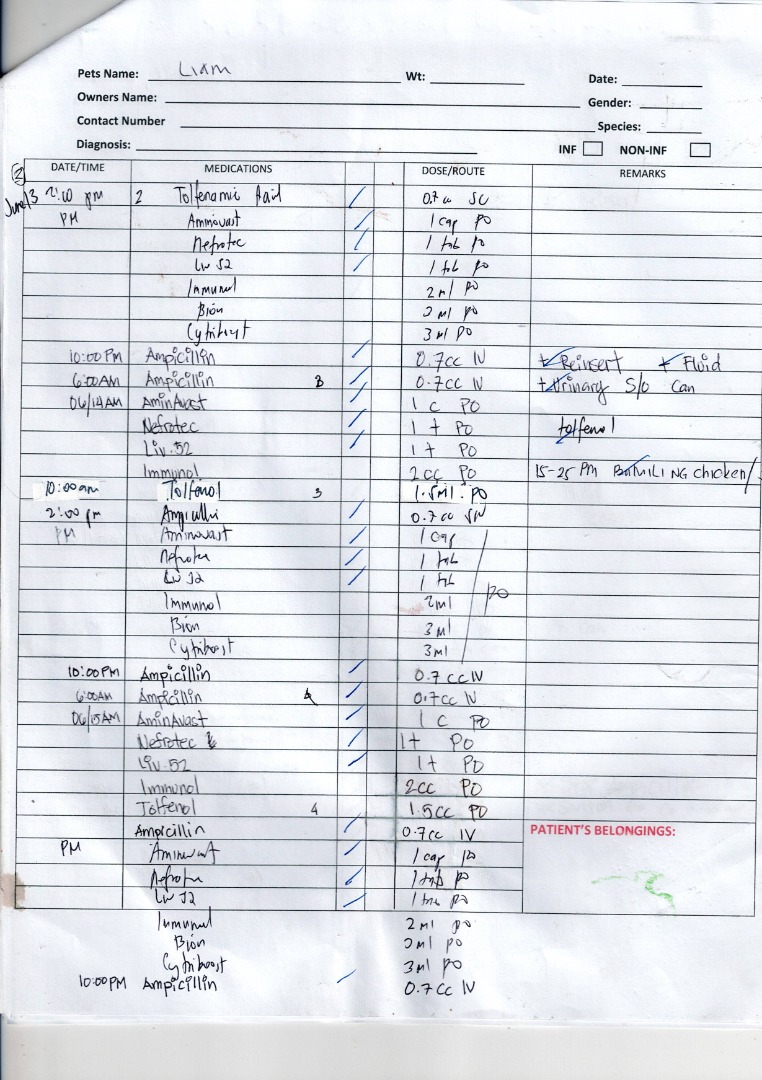 Pets Name: Liam Wt: Date:
Owners Name: Gender:
Contact Number Species:
Diagnosis: INF NON-INF
2
DATE/TIME MEDICATIONS DOSE/ROUTE REMARKS
June 13 2:00 pm 2 Tolfenamic Acid 0.7 cc SC
PM Aminovast 1 cap PO
Nefrotec 1 tab PO
Liv 52 1 tab PO
Immunol 2ml PO
Bion 3 ml PO
Cytiboost 3 ml PO
10:00 PM Ampicillin 0.7cc IV + Reinsert + Fluid
6:00AM Ampicillin 3 0.7cc IV + Urinary S/o Can
06/14AM AminAvast 1 c PO
Nefrotec 1 t PO tolfenol
Liv.52 1 t PO
Immunol 2cc PO 15-25 PM chicken/
10:00am Tolfenol 3 1.5ml. PO
2:00 pm Ampicillin 0.7 cc
PM Aminovast 1 cap
Nefrotec 1 tab
Liv 52 1 tab
Immunol 2ml PO
Bion 3 ml
Cytiboost 3 ml
10:00PM Ampicillin 0.7 cc IV
6:00AM Ampicillin 4 0.7cc IV
06/15AM AminAvast 1 C PO
Nefrotec 1t PO
Liv.52 1t PO
Immunol 2cc PO
Tolfenol 4 1.5cc PO
Ampicillin 0.7cc IV PATIENT'S BELONGINGS:
PM Aminovast 1 cap po
Nefrotec 1 tab po
Liv 52 1 tab po
Immunol 2 ml po
Bion 3 ml po
Cytiboost 3 ml po
10:00PM Ampicillin 0.7 cc IV